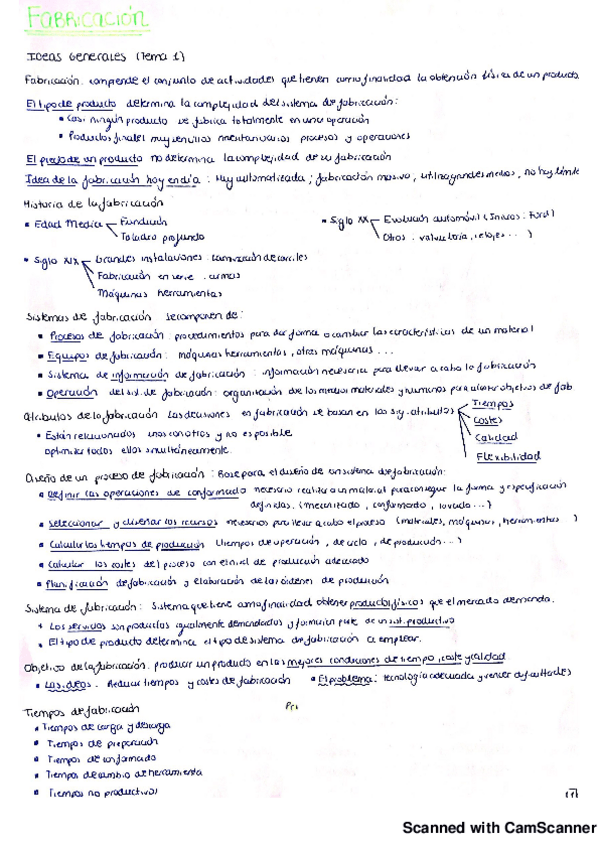 FABRICACIÓN
Ideas Generales (Tema 1)
Fabricación: comprende el conjunto de actividades que tienen como finalidad la obtención física de un producto
El tipo de producto determina la complejidad del sistema de fabricación:
• Casi ningún producto se fabrica totalmente en una operación
• Productos finales muy sencillos necesitan varios procesos y operaciones
El precio de un producto no determina la complejidad de su fabricación
Idea de la fabricación hoy en día: Muy automatizada; fabricación masiva, utiliza grandes medios, no hay límite
Historia de la fabricación
• Edad Media Fundición
Taladro profundo
• Siglo XX Evolución automóvil (Inicios: Ford)
Otros: valvulería, relojes...)
• Siglo XIX Grandes instalaciones:
Fabricación en serie: armas
Máquinas herramientas
Sistemas de fabricación se componen de:
• Procesos de fabricación: procedimientos para dar forma o cambiar las características de un material
• Equipos de fabricación: máquinas herramientas, otras máquinas...
• Sistema de información de fabricación: información necesaria para llevar a cabo la fabricación
• Operación del sist. de fabricación: organización de los medios materiales y humanos para alcanzar objetivos de fab
Atributos de la fabricación Las decisiones en fabricación se basan en los sig. atributos Tiempos
Costes
Calidad
Flexibilidad
• Están relacionados unos con otros y no es posible
optimizar todos ellos simultáneamente.
Diseño de un proceso de fabricación: Base para el diseño de un sistema de fabricación:
• Definir las operaciones de conformado necesario realizar a un material para conseguir la forma y especificación
definidas. (mecanizado, conformado, lavado...)
• Seleccionar y diseñar los recursos necesarios para llevar a cabo el proceso (materiales, máquinas, herramientas...)
• Calcular los tiempos de producción (tiempos de operación, de ciclo, de producción...)
• Calcular los costes del proceso con el nivel de producción adecuado
• Planificación de fabricación y elaboración de las órdenes de producción
Sistema de fabricación: Sistema que tiene como finalidad obtener productos físicos que el mercado demanda.
+ Los servicios son productos igualmente demandados y forman parte de un sist. productivo
• El tipo de producto determina el tipo de sistema de fabricación a emplear.
Objetivo de la fabricación: producir un producto en las mejores condiciones de tiempo, coste y calidad
• Las ideas: Reducir tiempos y costes de fabricación • El problema: tecnología adecuada y vencer dificultades
Tiempos de fabricación
• Tiempos de carga y descarga
• Tiempos de preparación
• Tiempos de conformado
• Tiempos de cambio de herramienta
• Tiempos no productivos
Scanned with CamScanner